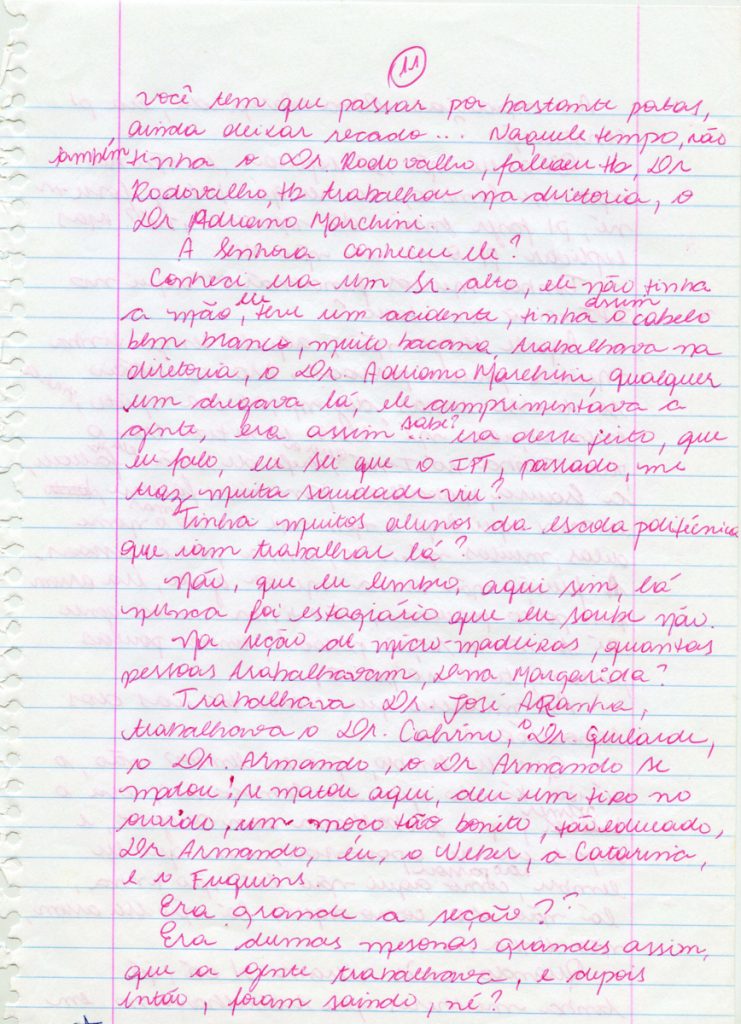 11
você tem que passar por bastante portas,
ainda deixar recado... Naquele tempo, não
também tinha o Dr. Rodovalho, faleceu tb, Dr
Rodovalho, tb trabalhou na diretoria, o
Dr Adriano Marchini.
A Senhora conheceu ele?
Conheci era um Sr. alto, ele não tinha
a mão, ele teve um acidente, tinha assim o cabelo
bem branco, muito bacana, trabalhava na
diretoria, o Dr. Adriano Marchini, qualquer
um chegava lá, ele cumprimentava a
gente, era assim sabe? ... era desse jeito, que
eu falo, eu sei que o IPT, passado, me
traz muita saudade viu?
Tinha muitos alunos da escola politécnica
que iam trabalhar lá?
Não, que eu lembro, aqui sim, lá
nunca foi estagiário que eu soube não.
Na seção de micro-madeiras, quantas
pessoas trabalhavam, Dna Margarida?
Trabalhava Dr. José Aranha,
trabalhava o Dr. Cabrino, o Dr.
o Dr. Armando, o Dr Armando se
matou, se matou aqui, deu um tiro no
ouvido, um moço tão bonito, tão educado,
Dr Armando, eu, o Weber, a Catarina,
e o
Era grande a seção??
Era dumas mesonas grandes assim,
que a gente trabalhava, e depois
então, foram saindo, né?